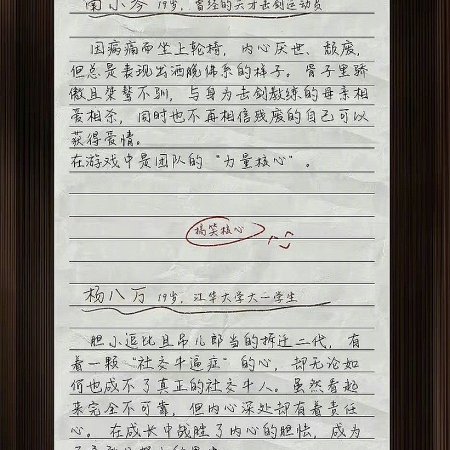 南小岑 19岁，曾经的天才击剑运动员
因病痛而坐上轮椅，内心厌世、颓废，
但总是表现出洒脱佛系的样子。骨子里骄
傲且桀骜不驯，与身为击剑教练的母亲相
爱相杀，同时也不再相信残废的自己可以
获得爱情。
在游戏中是团队的“力量核心”。
搞笑核心
杨八万 19岁，江华大学大一学生
胆小逗比且吊儿郎当的拆迁二代，有
着一颗“社交牛逼症”的心，却无论如
何也成不了真正的社交牛人。虽然看起
来完全不可靠，但内心深处却有着责任
心。在成长中战胜了内心的胆怯，成为